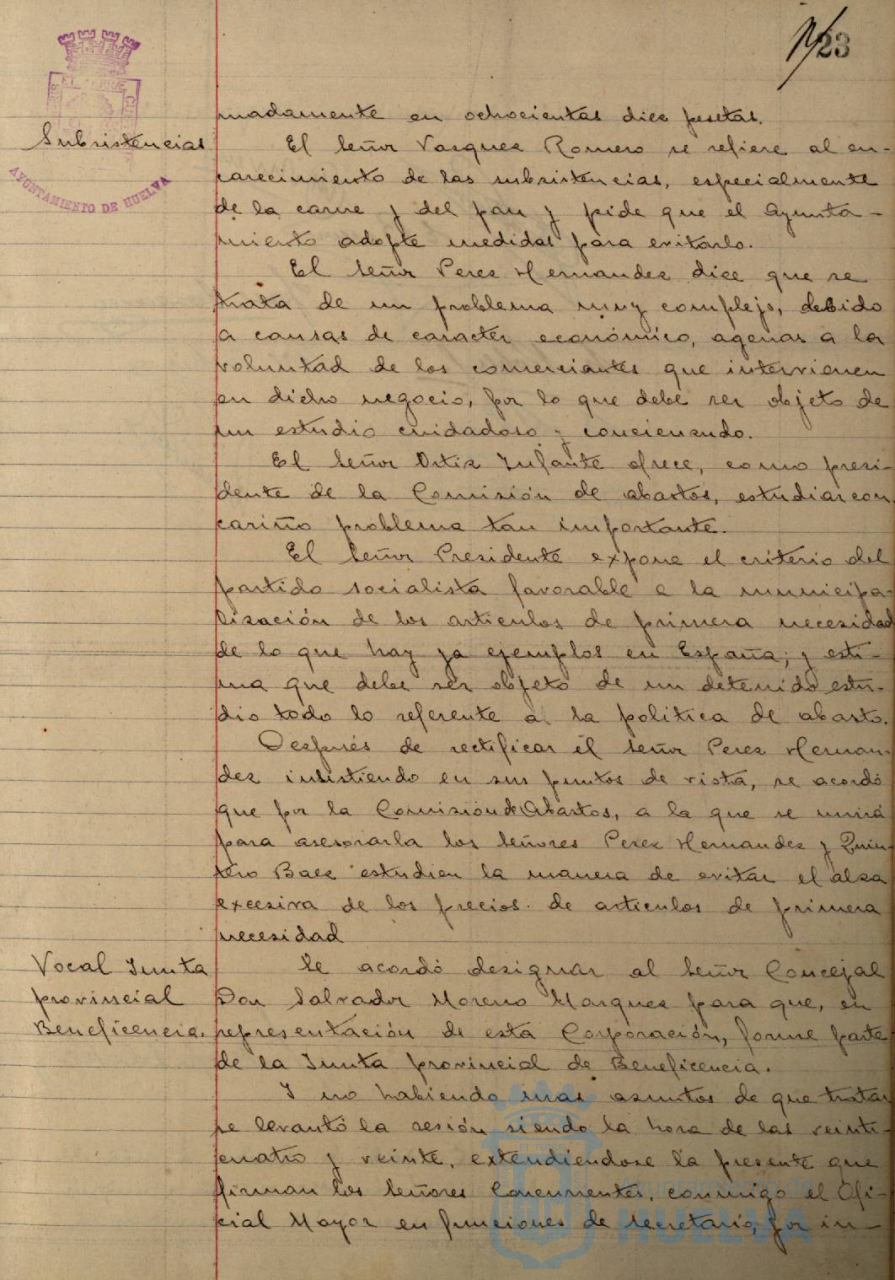 23
madamente en ochocientas diez pesetas.
Subsistencias
El Señor Vasquez Romero se refiere al en-
carecimiento de las subsistencias, especialmente
de la carne y del pan y pide que el Ayunta-
miento adopte medidas para evitarlo.
El Señor Perez Hernandez dice que se
trata de un problema muy complejo, debido
a causas de caracter económico, agenas a la
voluntad de los comerciantes que intervienen
en dicho negocio, por lo que debe ser objeto de
un estudio cuidadoso y concienzudo.
El Señor Ortiz Infante ofrece, como presi-
dente de la Comisión de abastos, estudiar con
cariño problema tan importante.
El Señor Presidente expone el criterio del
partido socialista favorable a la municipa-
lización de los articulos de primera necesidad
de lo que hay ya ejemplos en España; y esti-
ma que debe ser objeto de un detenido estu-
dio todo lo referente a la politica de abasto.
Después de rectificar el Señor Perez Hernan-
dez insistiendo en sus puntos de vista, se acordó
que por la Comisión de Abastos, a la que se unirá
para asesorarla los Señores Perez Hernandez y Quin-
tero Baez estudien la manera de evitar el alza
excesiva de los precios de articulos de primera
necesidad
Vocal Junta
provincial
Beneficencia.
Se acordó designar al Señor Concejal
Don Salvador Moreno Marquez para que, en
representación de esta Corporación, forme parte
de la Junta provincial de Beneficencia.
Y no habiendo mas asuntos de que tratar
se levantó la sesión siendo la hora de las veinti-
cuatro y veinte, extendiéndose la presente que
firman los Señores Concurrentes, conmigo el Ofi-
cial Mayor en funciones de secretario, por in-
AYUNTAMIENTO DE HUELVA
Ayuntamiento de
HUELVA